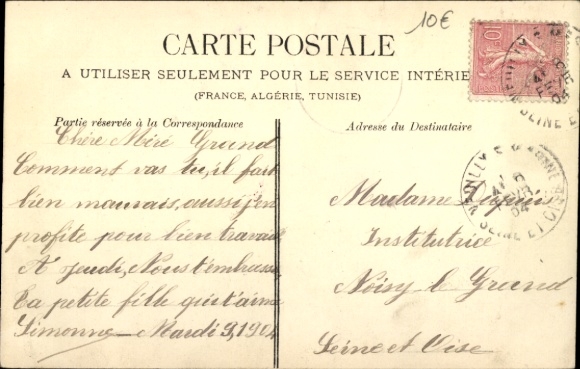 10€
CARTE POSTALE
A UTILISER SEULEMENT POUR LE SERVICE INTÉRIE
(FRANCE, ALGÉRIE, TUNISIE)
Partie réservée à la Correspondance
Adresse du Destinataire
Chère Méré Grund
Comment vas tu, il fait
bien mauvais, aussi j'en
profite pour bien travail
A jeudi, Nous t'embrasse
Ta petite fille qui t'aime
Simonne — Mardi 9, 1904
Madame
Institutrice
Noisy le Grand
Seine et Oise
SEINE ET OISE
04